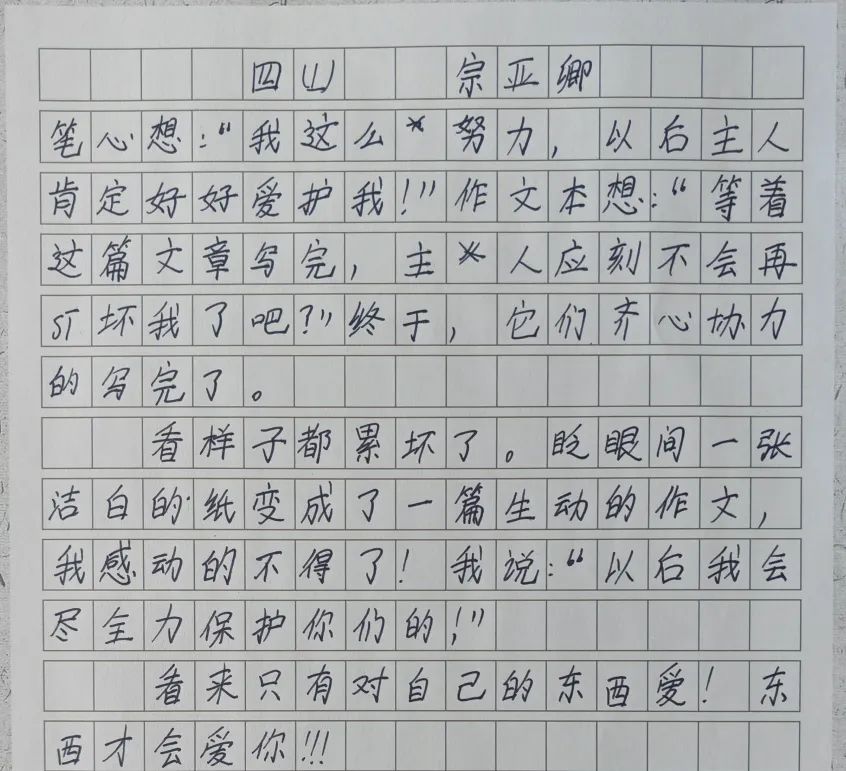 四(1) 宗亚卿
笔心想:“我这么努力,以后主人
肯定好好爱护我!”作文本想:“等着
这篇文章写完,主人应刻不会再
坏我了吧?”终于,它们齐心协力
的写完了。
看样子都累坏了。眨眼间一张
洁白的纸变成了一篇生动的作文,
我感动的不得了!我说:“以后我会
尽全力保护你们的!”
看来只有对自己的东西爱!东
西才会爱你!!!